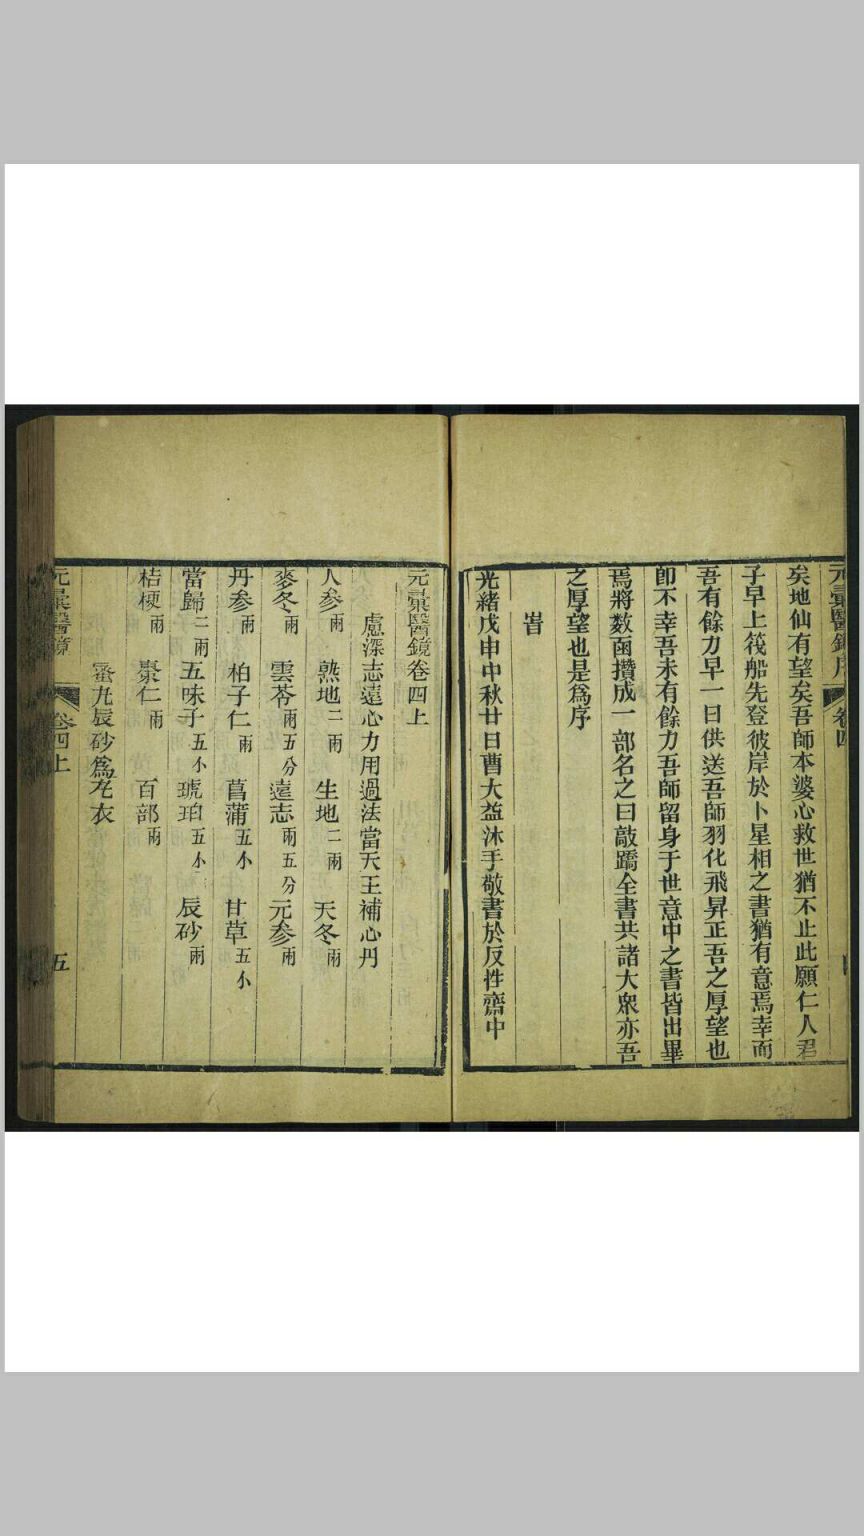 元彙醫鏡序 卷四
矣地仙有望矣吾師本婆心救世猶不止此願仁人君
子早上筏船先登彼岸於卜星相之書猶有意焉幸而
吾有餘力早一日供送吾師羽化飛昇正吾之厚望也
卽不幸吾未有餘力吾師留身于世意中之書皆出畢
焉將数函攢成一部名之曰敲蹻全書共諸大衆亦吾
之厚望也是爲序
旹
光緒戊申中秋廿日曹大益沐手敬書於反性齋中
元彙醫鏡卷四上
慮深志遠心力用過法當天王補心丹
人参兩 熟地二兩 生地二兩 天冬兩
麥冬兩 雲苓兩五分 遠志兩五分 元参兩
丹参兩 柏子仁兩 菖蒲五小 甘草五小
當歸二兩 五味子五小 琥珀五小 辰砂兩
桔梗兩 棗仁兩 百部兩
蜜丸辰砂爲衣
元彙醫鏡 卷四上 五